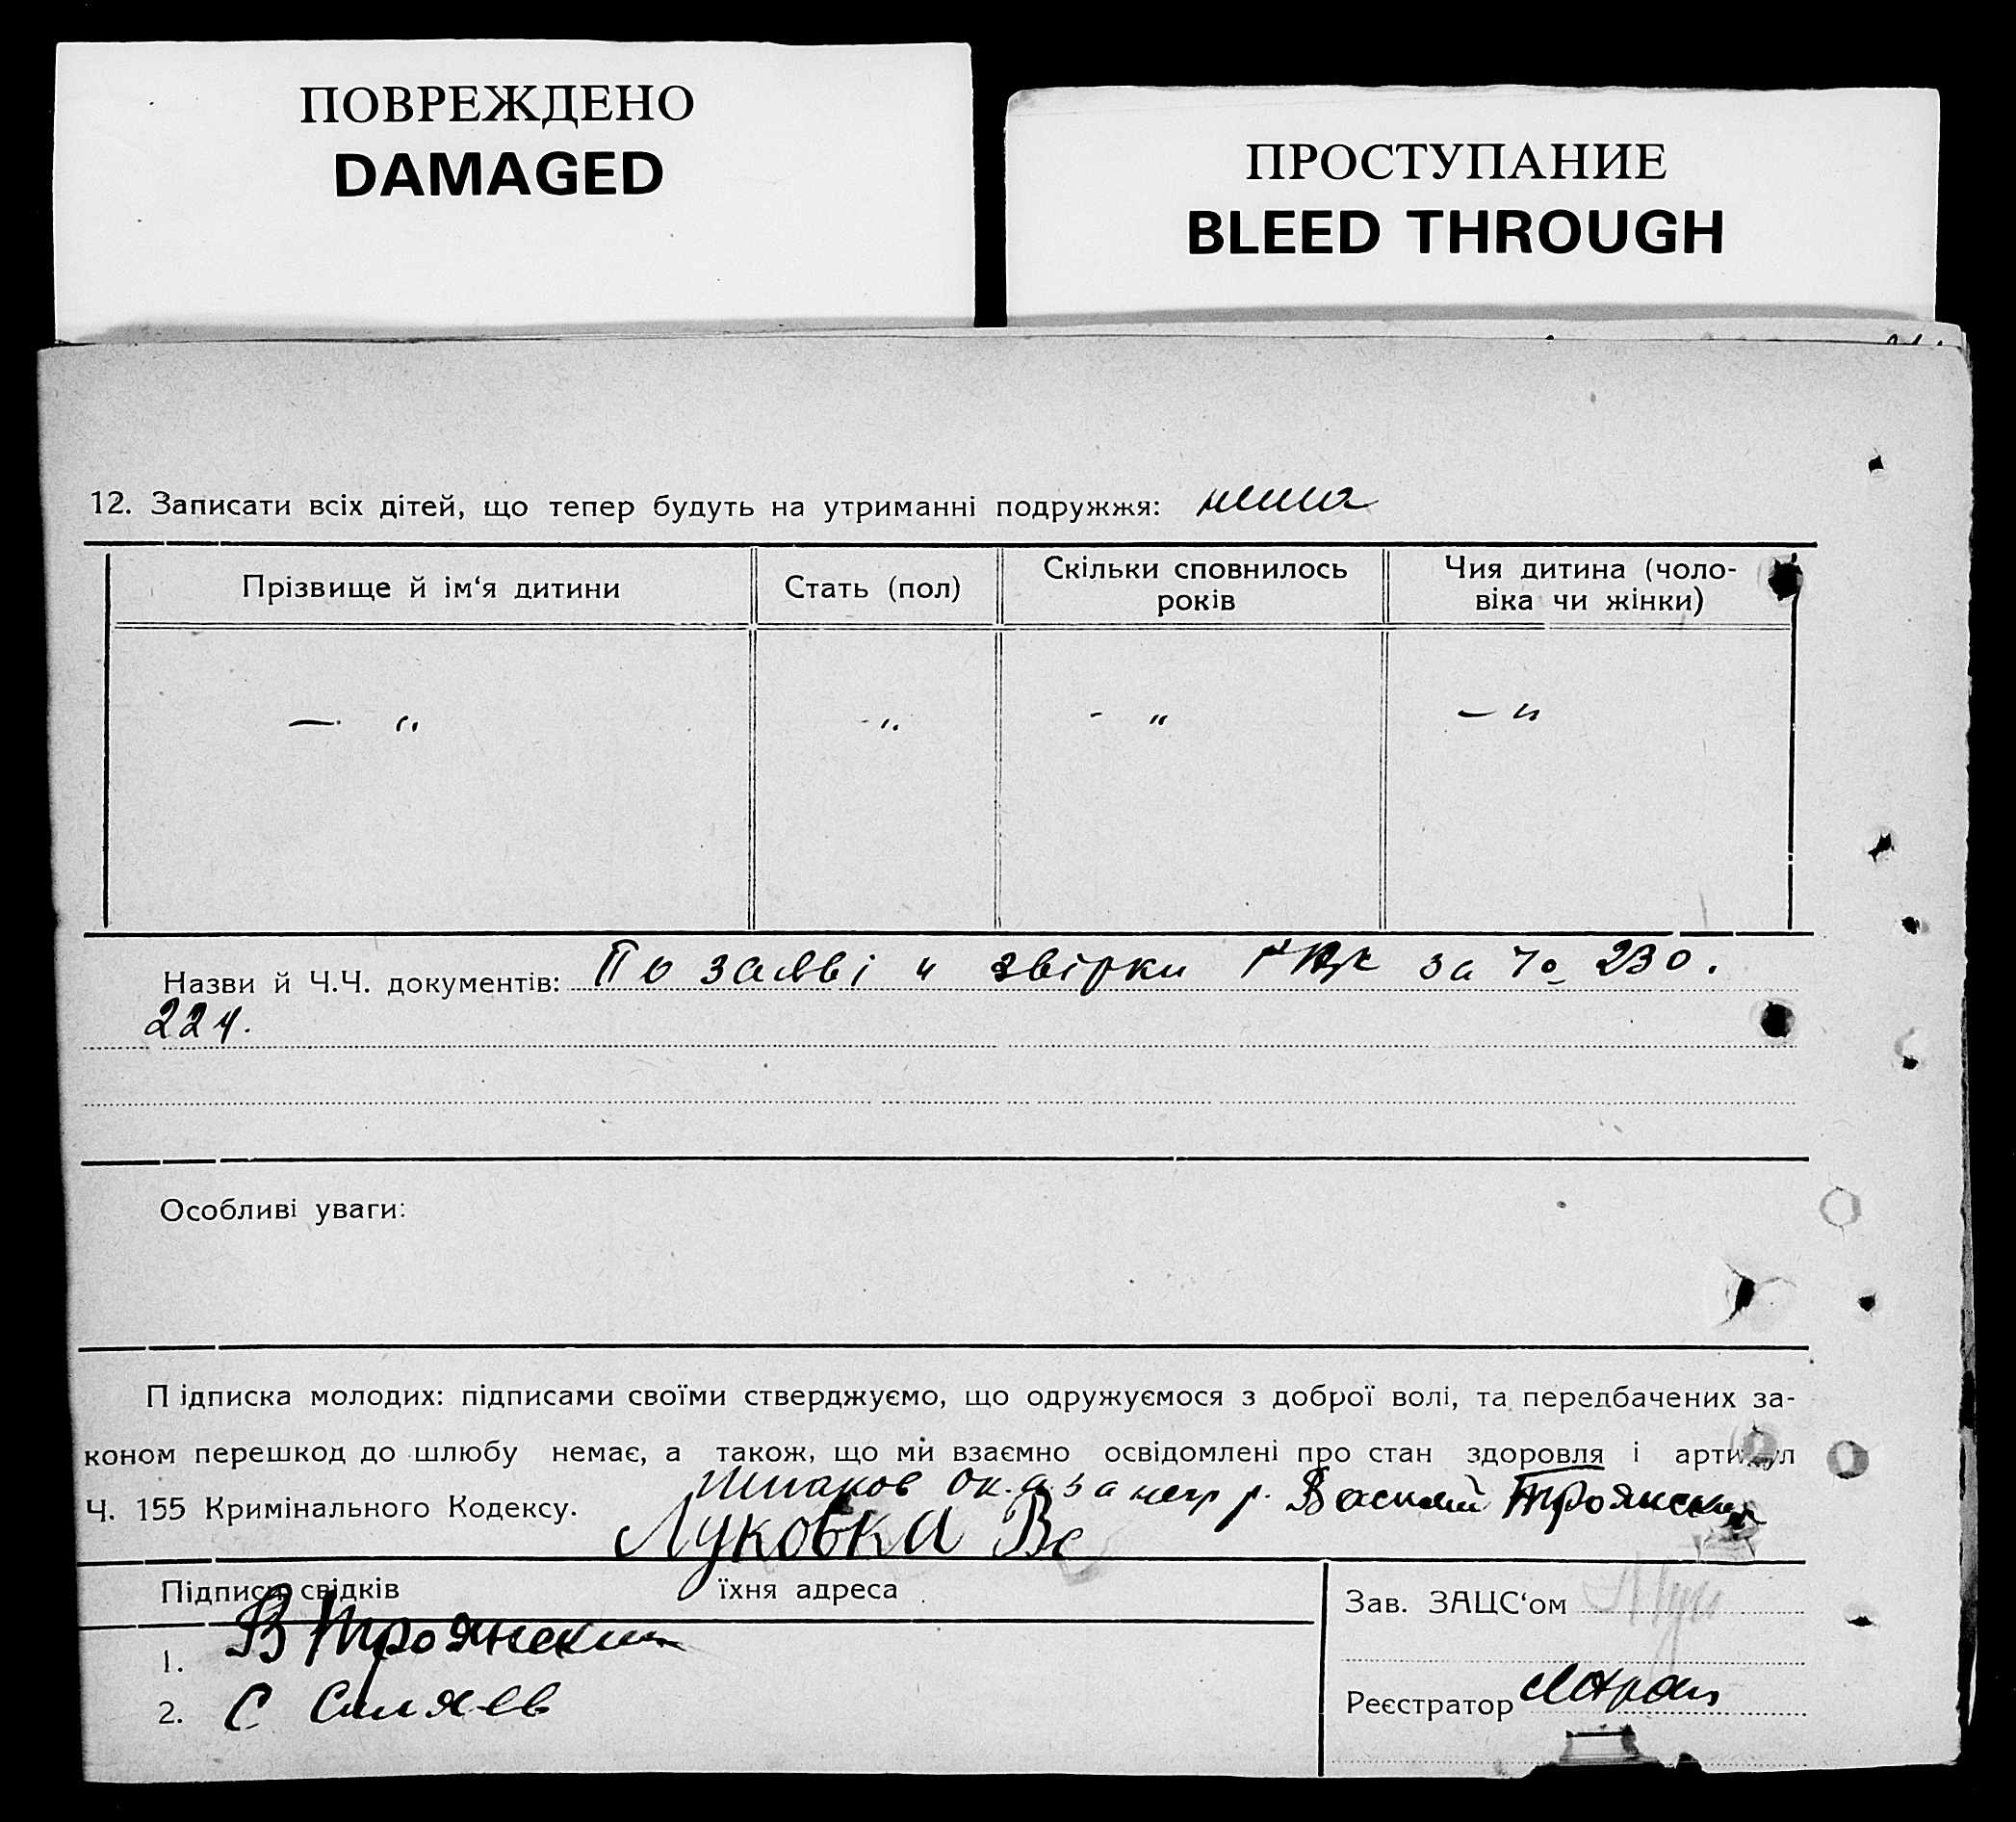 ПОВРЕЖДЕНО
DAMAGED
ПРОСТУПАНИЕ
BLEED THROUGH
12. Записати всіх дітей, що тепер будуть на утриманні подружжя: нема
Прізвище й ім‘я дитини
Стать (пол)
Скільки сповнилось
років
Чия дитина (чоло-
віка чи жінки)
— „ - „ - „ — „
Назви й Ч.Ч. документів: По заяві и звірки за № 230.
224.
Особливі уваги:
Підписка молодих: підписами своїми стверджуємо, що одружуємося з доброї волі, та передбачених за-
коном перешкод до шлюбу немає, а також, що ми взаємно освідомлені про стан здоровля і артикул
Ч. 155 Кримінального Кодексу. за негр р. Василий Троянский
Луковка Ве
Підписи свідків їхня адреса
1. В Троянский
2. С Силяев
Зав. ЗАЦС‘ом
Реєстратор